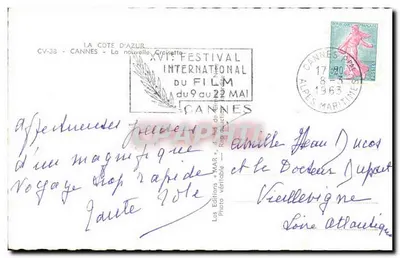 LA COTE D'AZUR
CV-38 - CANNES - La nouvelle Croisette
XVIe FESTIVAL
INTERNATIONAL
DU FILM
du 9 au 22 MAI
CANNES
CANNES
17-
8-
1963
ALPES-MARITIMES
Les Editions "MAR"
affectueuses pensées
d'un magnifique
voyage trop rapide
Tante
Famille Jean Ducos
et le Docteur Dupart
Vieillevigne
Loire Atlantique